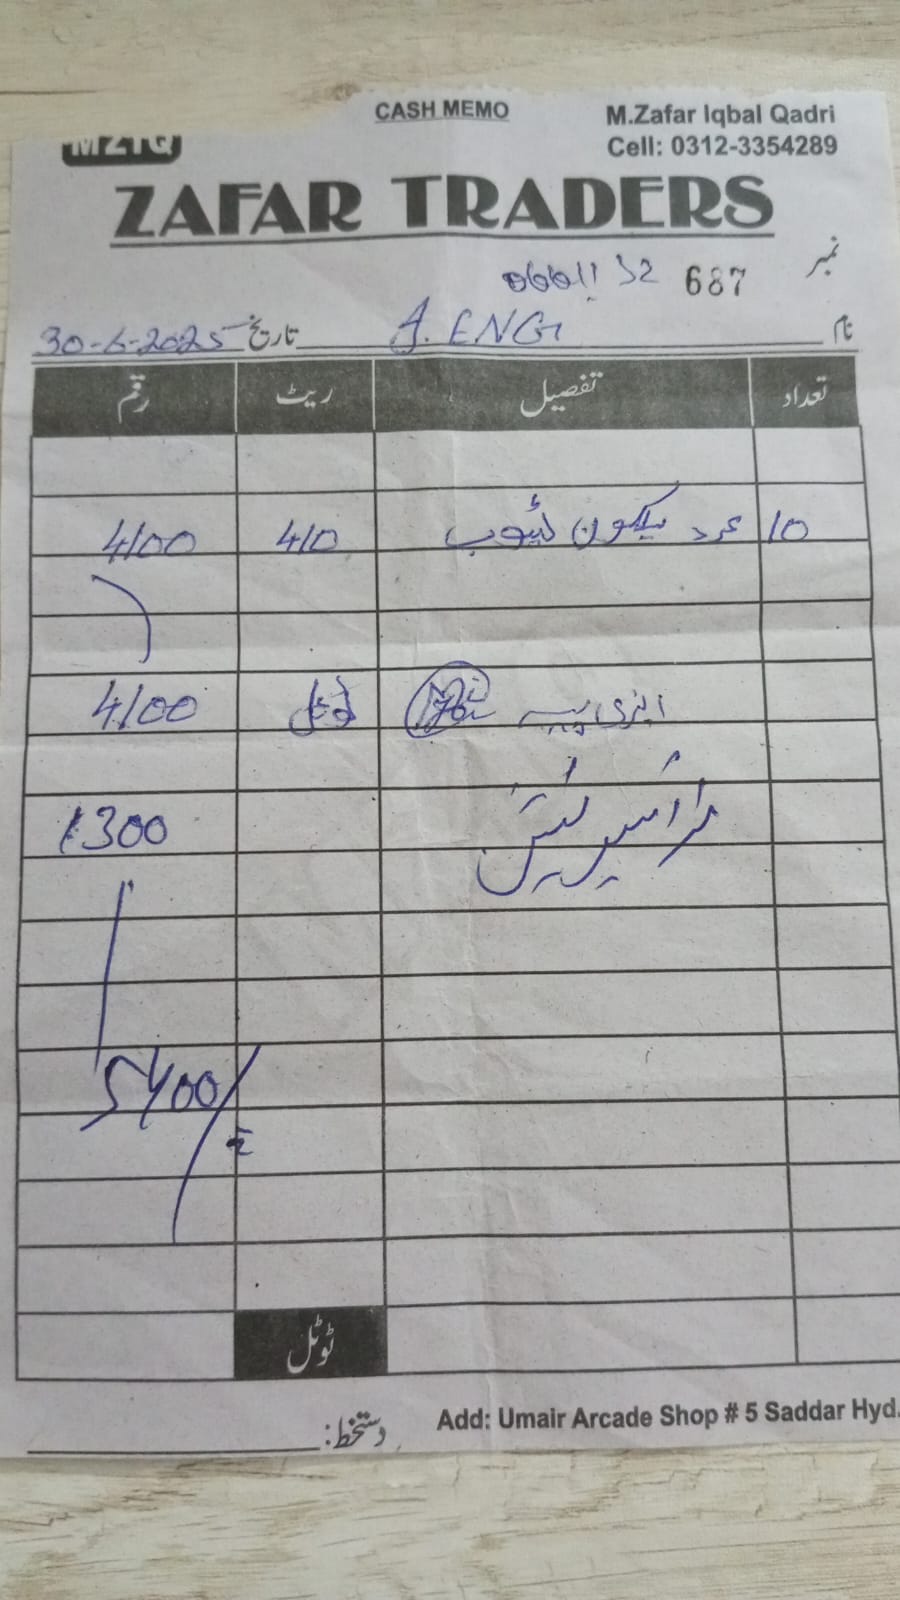 CASH MEMO
M.Zafar Iqbal Qadri
Cell: 0312-3354289
MZIQ
ZAFAR TRADERS
نمبر 687
نام J. ENG تاریخ 30-6-2025
تعداد تفصیل ریٹ رقم
10 عدد سیلیکون ٹیوب 410 4100
ٹوٹل 4100
1300
5400/
ٹوٹل
دستخط:
Add: Umair Arcade Shop # 5 Saddar Hyd.